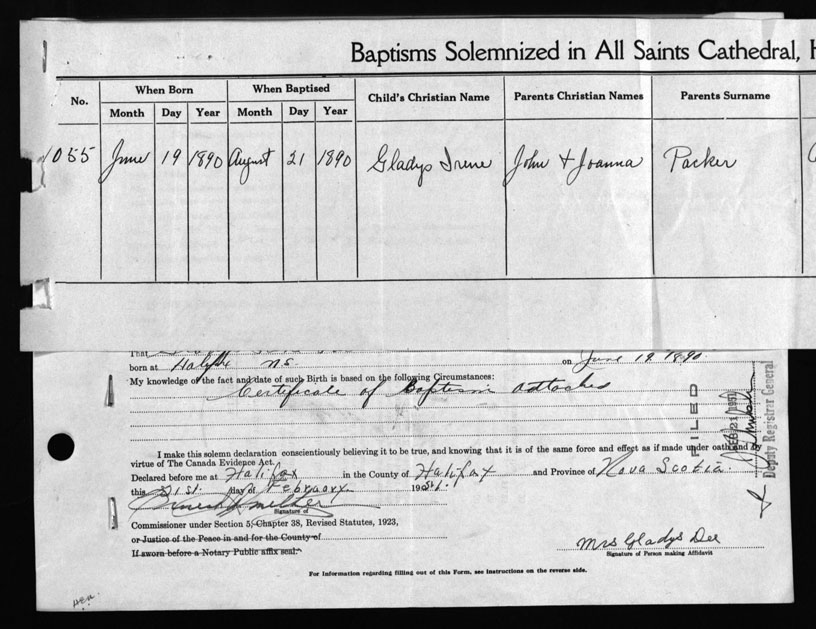 Baptisms Solemnized in All Saints Cathedral, H
No. When Born When Baptised Child's Christian Name Parents Christian Names Parents Surname
Month Day Year Month Day Year
1055 June 19 1890 August 21 1890 Gladys Irene John & Joanna Packer
born at Halifx N.S. on June 19 1890
My knowledge of the fact and date of such Birth is based on the following Circumstances:
Certificate of Baptism attached
I make this solemn declaration conscientiously believing it to be true, and knowing that it is of the same force and effect as if made under oath and by
virtue of The Canada Evidence Act.
Declared before me at Halifax in the County of Halifax and Province of Nova Scotia.
this 21st. day of February 1951.
Signature of
Commissioner under Section 5, Chapter 38, Revised Statutes, 1923,
or Justice of the Peace in and for the County of
If sworn before a Notary Public affix seal.
Mrs Gladys Dee
Signature of Person making Affidavit
For Information regarding filling out of this Form, see instructions on the reverse side.
FILED
FEB 21 1951
Deputy Registrar General